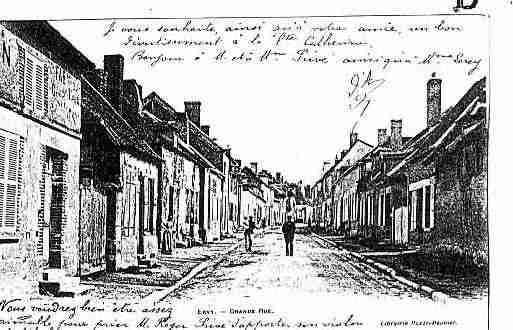 Je vous souhaite, ainsi qu'à votre amie, un bon
divertissement à la Ste Catherine.
Bonjour à M. et à Mme Sure ainsi qu'à Mme
ERVY. – GRANDE RUE.
Vous voudrez bien être assez
aimable pour prier M. Roger d'apporter son violon
Librairie
N